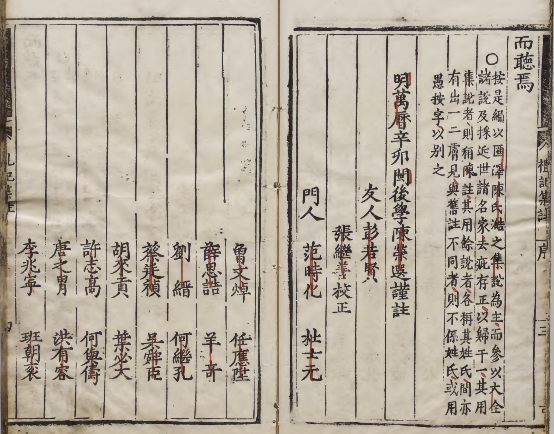 而聽焉
○按是編以匯澤陳氏澔之集說為主而參以大全
諸說及採近世諸名家去疵存正以歸于一其用
集說者則稱陳註其用餘說者各稱其姓氏間亦
有出一二膚見與舊註不同者則不係姓氏或用
愚按字以別之
明萬曆辛卯閩後學陳榮選謹註
友人彭若賢
張繼善校正
門人 范時化 杜士元
魯文焯 任應陞
薛思誥 羊奇
劉縉 何繼孔
蔡廷楨 吳舜臣
胡來貢 葉必大
許志高 何與儔
唐之胃 洪有容
李兆寧 班朝袞